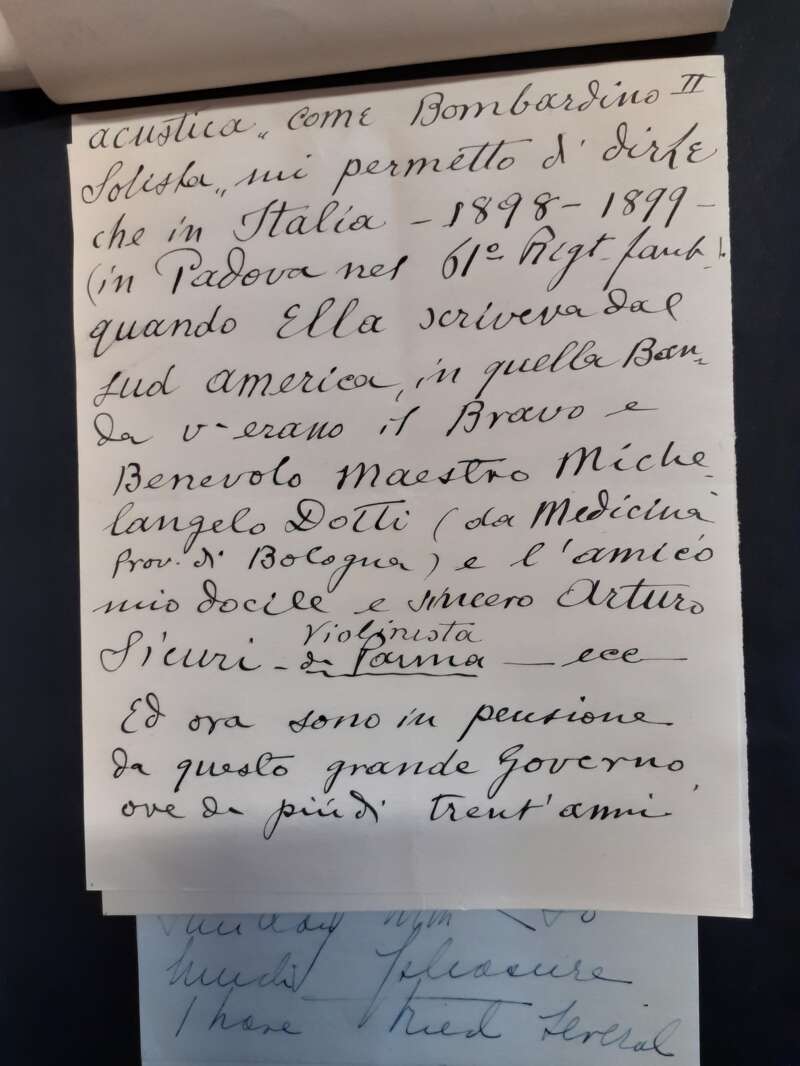 acustica„ come Bombardino II
Solista„ mi permetto di dirLe
che in Italia - 1898 - 1899 -
(in Padova nel 61º Rigt. fant.).
quando Ella scriveva dal
sud america, in quella Ban-
da v-erano il Bravo e
Benevolo Maestro Miche-
langelo Dotti (da Medicina
Prov. di Bologna) e l'amico
mio docile e sincero Arturo
Sicuri - Violinista
di Parma — ecc —
Ed ora sono in pensione
da questo grande Governo,
ove da più di trent'anni
much pleasure
I have tried several